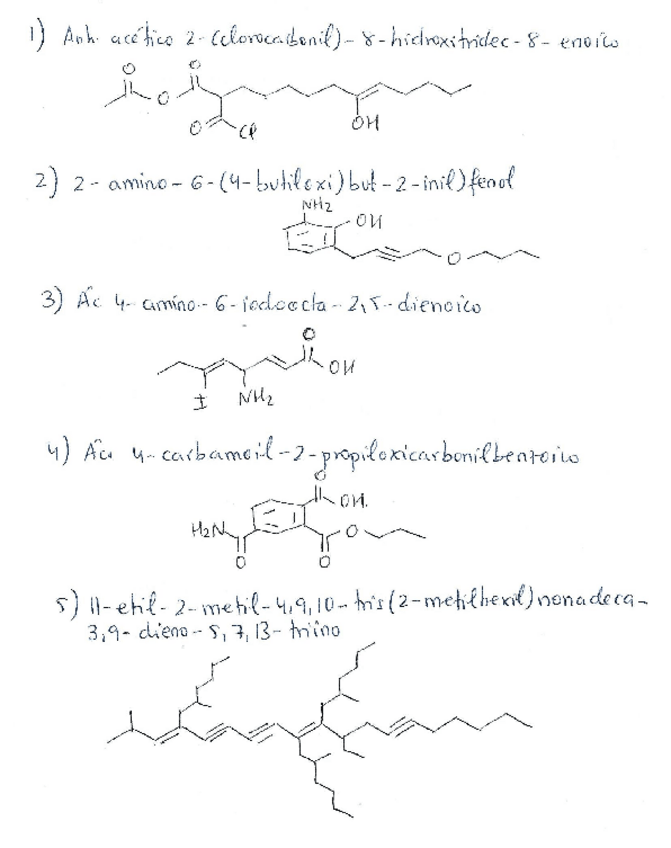 1) Anh. acético 2-(clorocarbonil)-8-hidroxitridec-8-enoico
O
O
O
O
Cl
OH
2) 2-amino-6-(4-butiloxi)but-2-inil)fenol
NH2
OH
O
3) Ác 4-amino-6-iodoocta-2,5-dienoico
O
OH
I
NH2
4) Ác. 4-carbamoil-2-propiloxicarbonilbenzoico
O
OH.
H2N
O
O
O
5) 11-etil-2-metil-4,9,10-tris(2-metilhexil)nonadeca-
3,9-dieno-5,7,13-triino